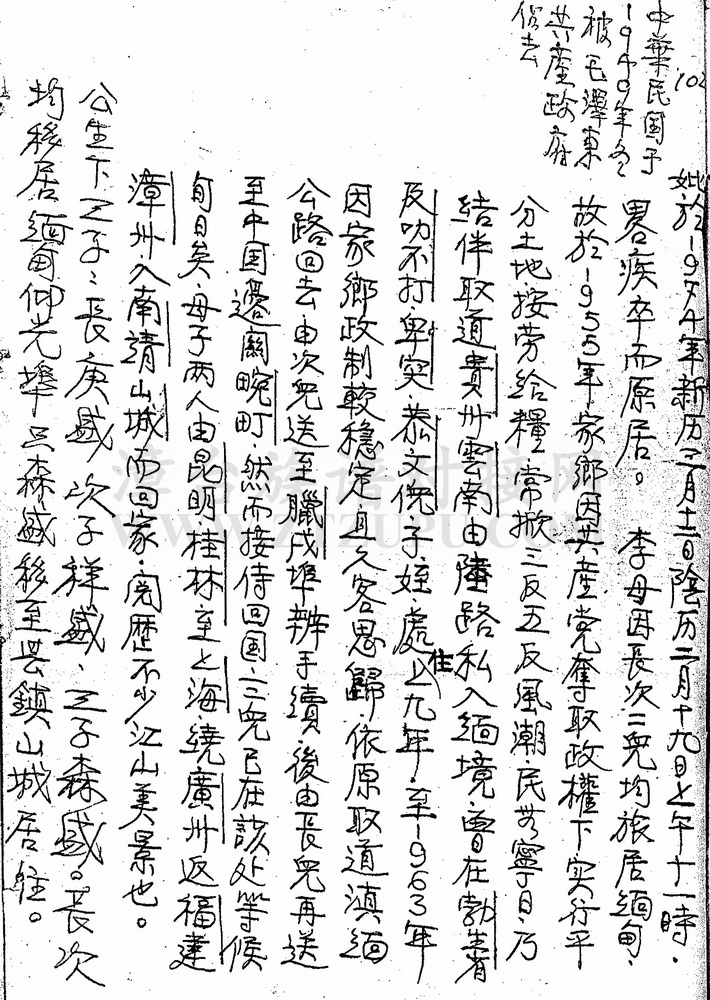 102
中華民国予
1949年冬
被毛澤東
共產政府
佔去
妣於1974年新历三月十二日陰历二月十九日上午十一時.
畧疾卒而原居。 李母因長次二兒均旅居緬甸.
故於1955年家鄉因共產党奪取政權下实行平
分土地.按劳给糧.常掀三反五反風潮.民無寧日.乃
結伴取道貴州雲南由陸路私入緬境.曾在勃生省
反叻不打.卑突.恭文倪.子姪處住上九年.至1963年
因家鄉政制較穩定且久客思歸.依原取道滇緬
公路回去由次兒送至臘戌埠辦手續後由長兒再送
至中国邊關畹町.然而接侍回国.三兒已在該处等候
旬日矣.母子两人由昆明.桂林至上海.繞廣州返福建
漳州入南靖山城而回家.閲歷不少江山美景也。
公生下三子:長庚盛 次子祥盛、三子森盛。長次
均移居緬甸仰光埠 只森盛移至芸鎮山城居住。
漳台族谱对接网
WWW.ZTZUPU.COM